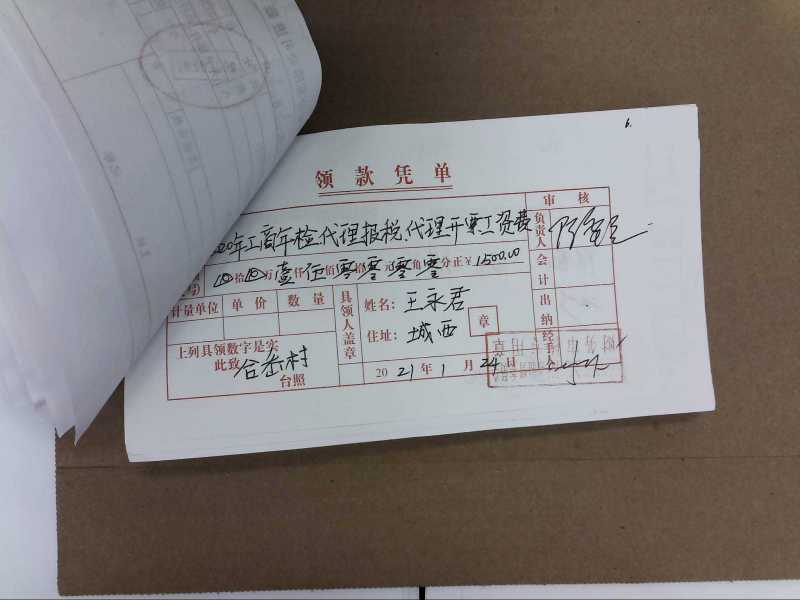 6.
领款凭单
20年工商年检、代理报税、代理开票工资费
拾 万 仟 佰 拾 元 角 分正 ¥ 1500.00
壹 伍 零 零 零 零
计量单位 单价 数量
具领人盖章
姓名: 王永君
住址: 城西
章
上列具领数字是实
此致
合岙村
台照
2021年1月24日
审核
负责人
会计
出纳
经手人